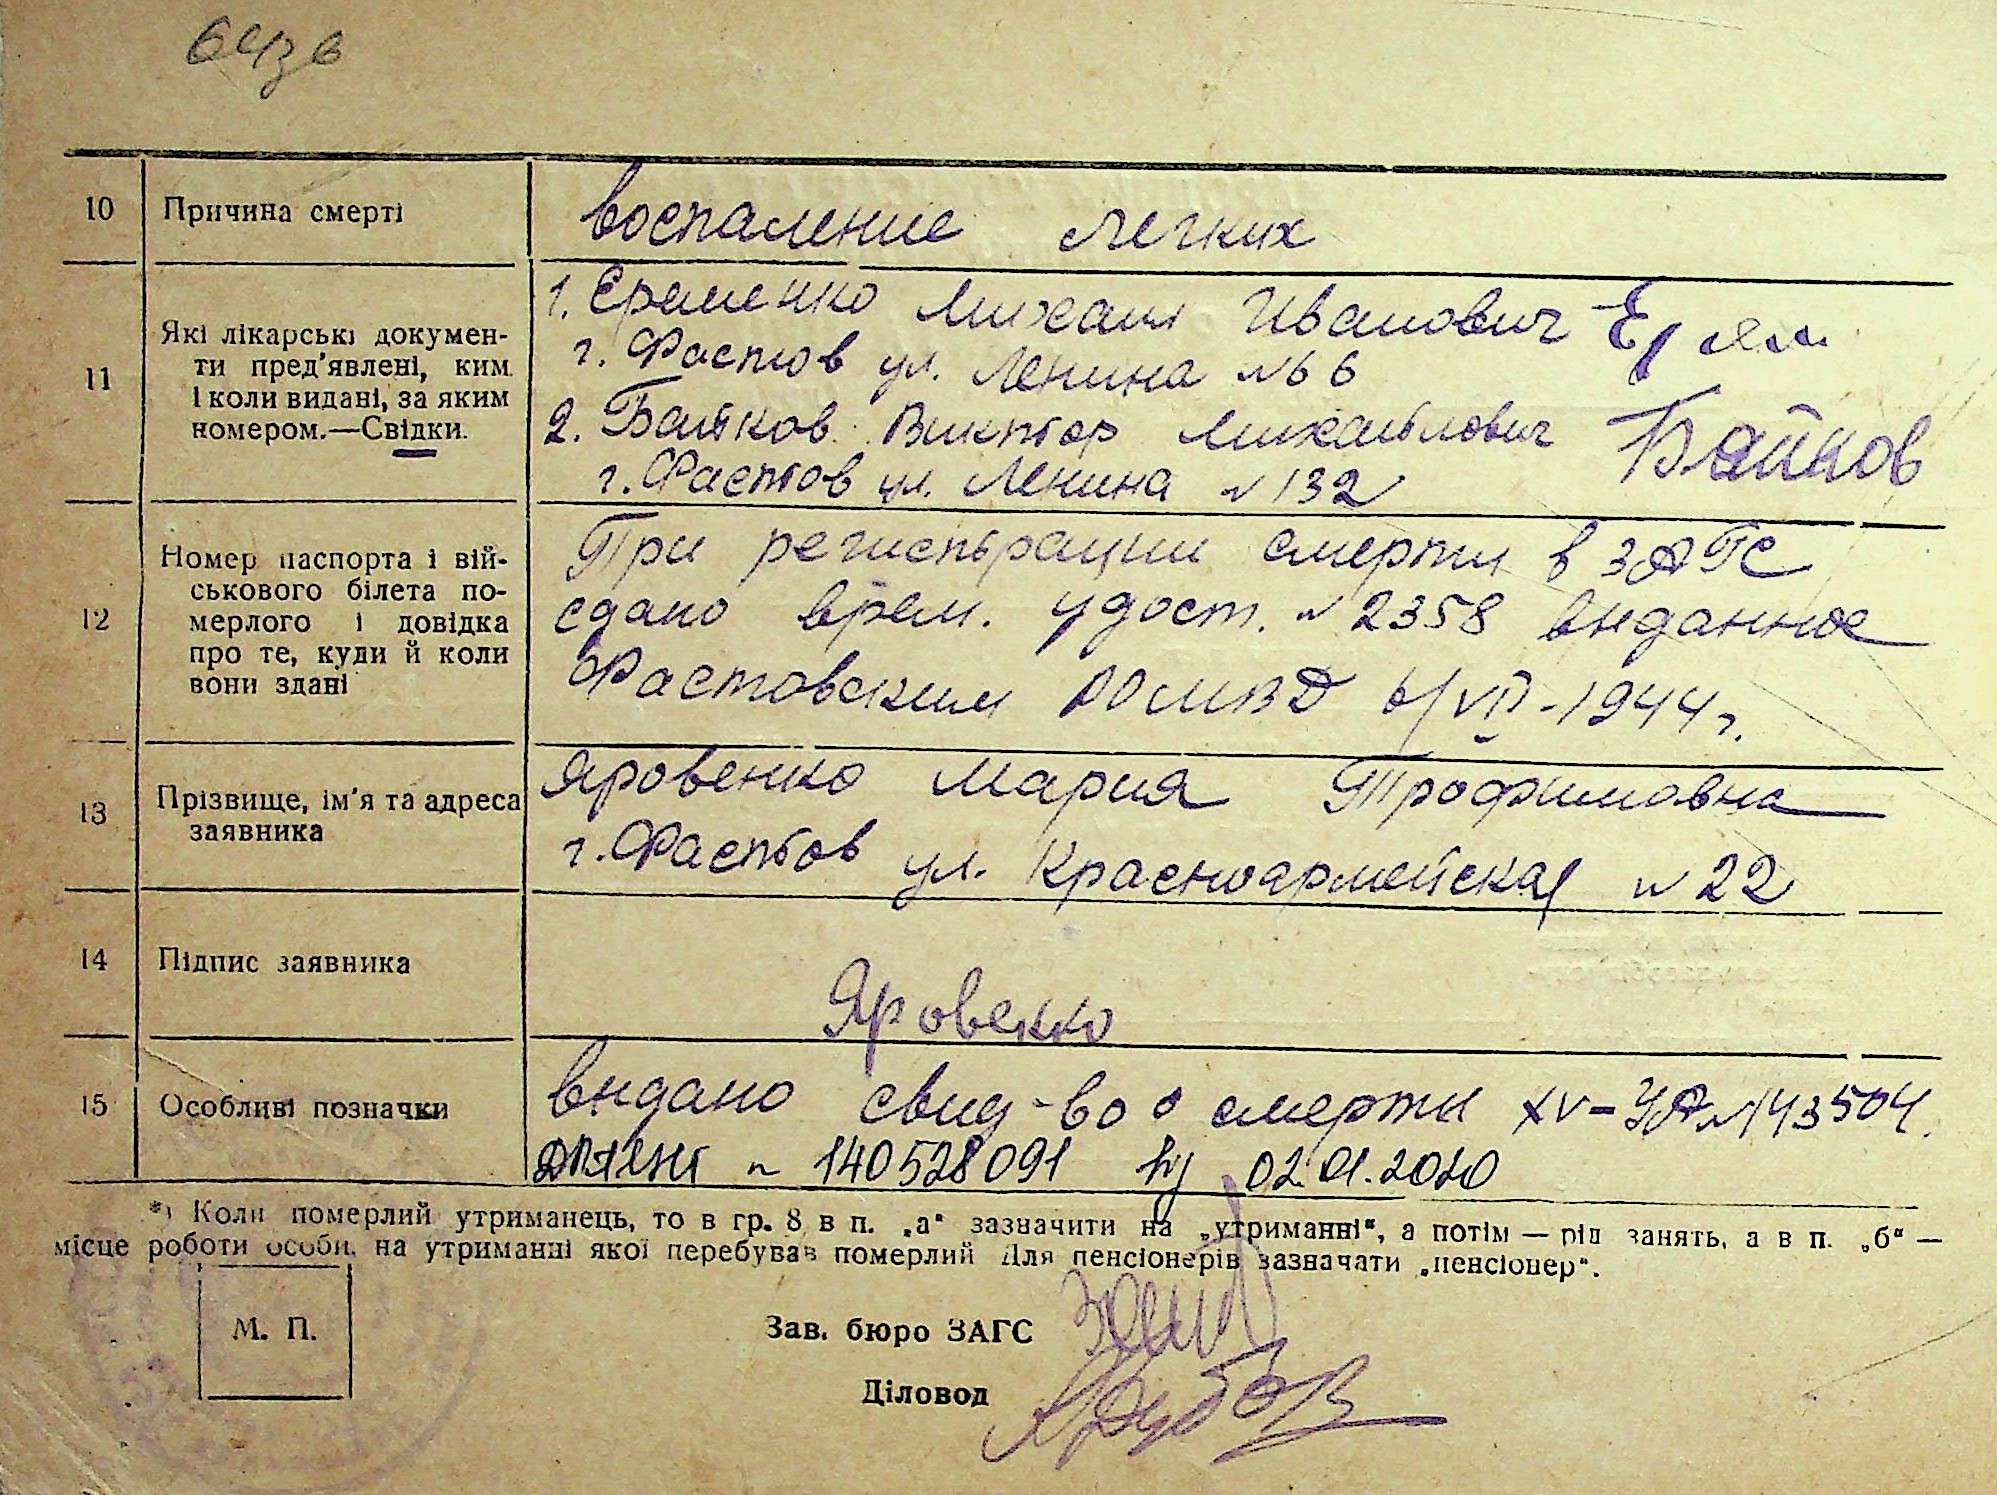 10 Причина смерті воспаление легких
11 Які лікарські докумен-
ти пред'явлені, ким
і коли видані, за яким
номером.—Свідки.
1. Еременко Михаил Иванович
г. Фастов ул. Ленина №66
2. Байков Виктор Михайлович Байков
г. Фастов ул. Ленина №132
12 Номер паспорта і вій-
ськового білета по-
мерлого і довідка
про те, куди й коли
вони здані
При регистрации смерти в ЗАГС
сдано врем. удост. №2358 выданное
Фастовским РОМВД /VII-1944г.
13 Прізвище, ім'я та адреса
заявника
Яровенко Мария Трофимовна
г. Фастов ул. Красноармейская №22
14 Підпис заявника Яровенко
15 Особливі позначки
выдано свид-во о смерти XV-УА №143504.
№ 140528091 02.01.2020
*) Коли померлий утриманець, то в гр. 8 в п. „а“ зазначити на „утриманні“, а потім — рід занять, а в п. „б“ —
місце роботи особи, на утриманні якої перебував померлий Для пенсіонерів зазначати „пенсіонер“.
М. П.
Зав. бюро ЗАГС
Діловод